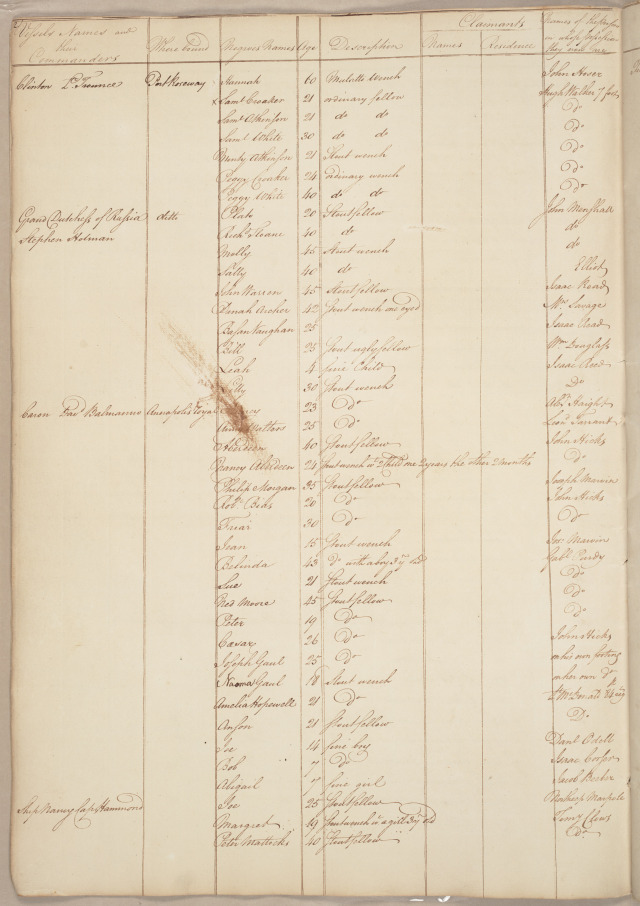 Vessels Names and their Commanders Where bound Negroes Names Age Description Claimants Names Residence Names of the Persons in whose Possession they now are
Clinton Lt. Trounce Port Roseway Hannah 60 Mulatto Wench John Moser
x Saml Croaker 21 ordinary fellow Hugh Walker
Saml Atkinson 21 do do Do
Saml White 30 do do Do
Atkinson 21 Stout wench Do
Peggy Croaker 24 ordinary wench Do
Peggy White 40 do do Do
Grand Dutchess of Russia ditto Plato 20 Stout fellow John Minshall
Stephen Holman Richd Sloane 40 do do
Molly 45 Stout wench do
Sally 40 do Elliot
John Warren 45 Stout fellow Isaac Read
Dinah Archer 42 Stout wench one eyed Mr. Savage
Vaughan 25 Isaac Read
Bill 25 Stout ugly fellow Wm Douglass
Leah 4 fine Child Isaac Reed
30 Stout wench Do
Annapolis Royal 23 Do Abm Haight
25 Do Leon Tarrant
Aberdeen 40 Stout fellow John Hicks
Nancy Aberdeen 24 Stout wench wt 2 Child one 2 years the other 2 Months Do
Philip Morgan 35 Stout fellow Joseph Marvin
Robt Bias 20 Do John Hicks
Friar 30 Do Do
Jean 15 Stout wench Jos Marvin
Belinda 43 Do with a boy 3 yrs old Gabl Purdy
Sue 21 Stout wench Do
Ned Moore 45 Stout fellow Do
Peter 19 Do Do
Cæsar 26 Do John Hicks
Joseph Gaul 25 Do on his own footing
Naoma Gaul 18 Stout wench on her own Do
Amelia Hopewell 21 Do
Anson 21 Stout fellow Do
Joe 14 fine boy Danl Odell
Bob 7 Do Isaac Corser
Abigail 7 fine girl Jacob Becker
Ship Nancy Capt Hammond Joe 25 Stout fellow
Margret 19 Stout wench wt a girl 3 yrs old Timy Clows
Peter Mattocks 40 Stout fellow Do